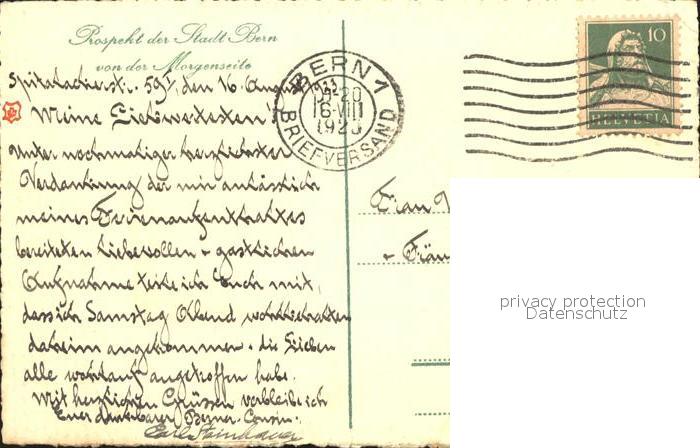 Prospekt der Stadt Bern
von der Morgenseite
Spitalackerstr. 59I, den 16. August
Meine Liebwertesten!
Unter nochmaliger herzlichster
Verdankung der mir anlässlich
meines Ferienaufenthaltes
bereiteten liebevollen & gastlichen
Aufnahme teile ich Euch mit,
dass ich Samstag Abend wohlbehalten
daheim angekommen & die Lieben
alle wohlauf angetroffen habe.
Mit herzlichen Grüssen verbleibe ich
Euer dankbarer Berner-Cousin:
BERN 1
16·VIII
BRIEFVERSAND
10
HELVETIA
Frau
& Fräu
privacy protection
Datenschutz